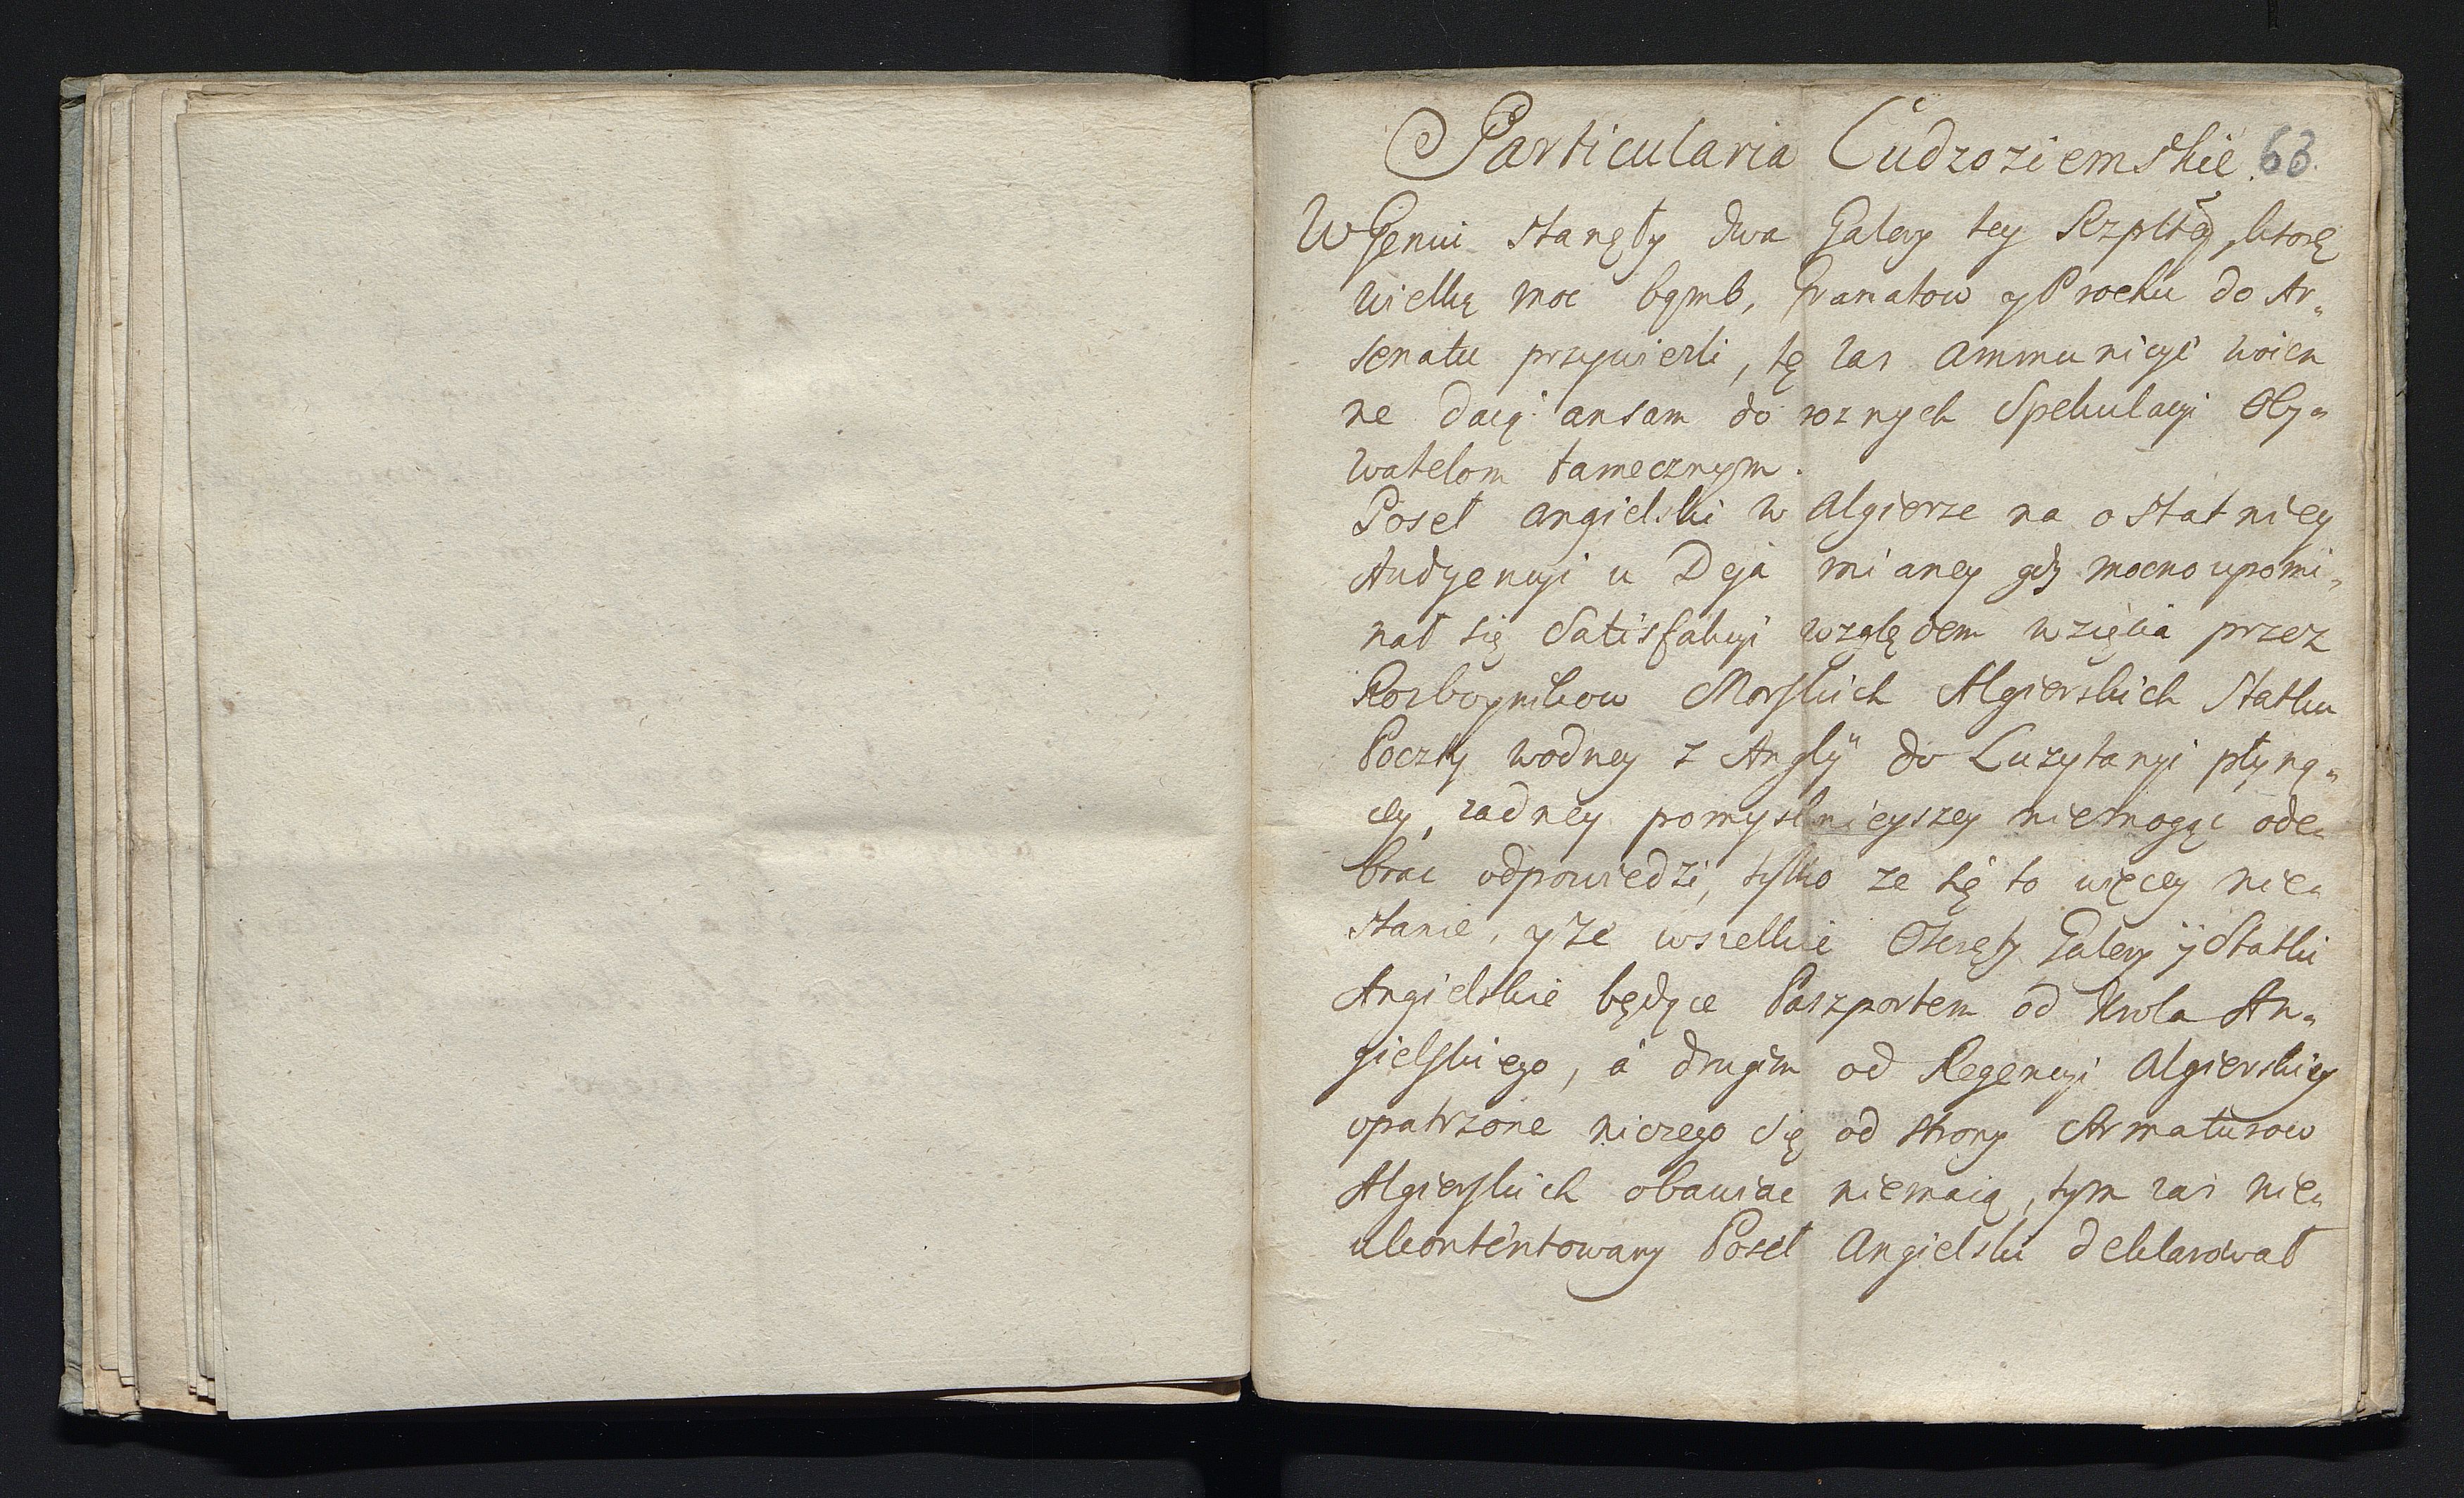 Particularia Cudzoziemskie. 63.
W Genui stanęły dwa Galery tey Rzpltey, ktorę
wielką moc bąmb, Granatow y Prochu do Ar„
senału przywiezli, tę zas ammunicye woien
ne daią ansam do roznych Spekulacyi Oby„
watelom tamecznym.
Poseł angielski w Algierze na ostatniey
Audyencyi u Deja mianey gdy mocno upomi„
nał się Satisfakcyi względem wzięcia przez
Rozboynikow Morskich Algierskich Statku
Poczty wodney z Anglÿ do Luzytanyi płyną„
cey, zadney pomyslnieyszey niemogąc ode„
brac odpowiedzi, tylko ze się to więcey nie„
stanie, y ze wszelkie Okręty Galery ÿ Statki
Angielskie będące Paszportem od Krola An„
gielskiego, á drugim od Regencyi Algierskiey
opatrzone niczego się od strony Armaturow
Algierskich obawiac niemaią, tym zas nie„
ukontentowany Poseł Angielski deklarował